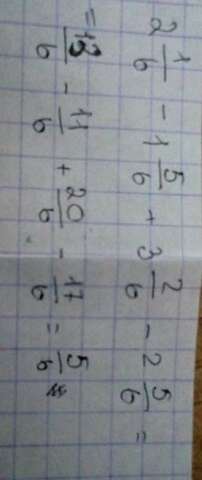 2 1/6 - 1 5/6 + 3 2/6 - 2 5/6 =
= 13/6 - 11/6 + 20/6 - 17/6 = 5/6